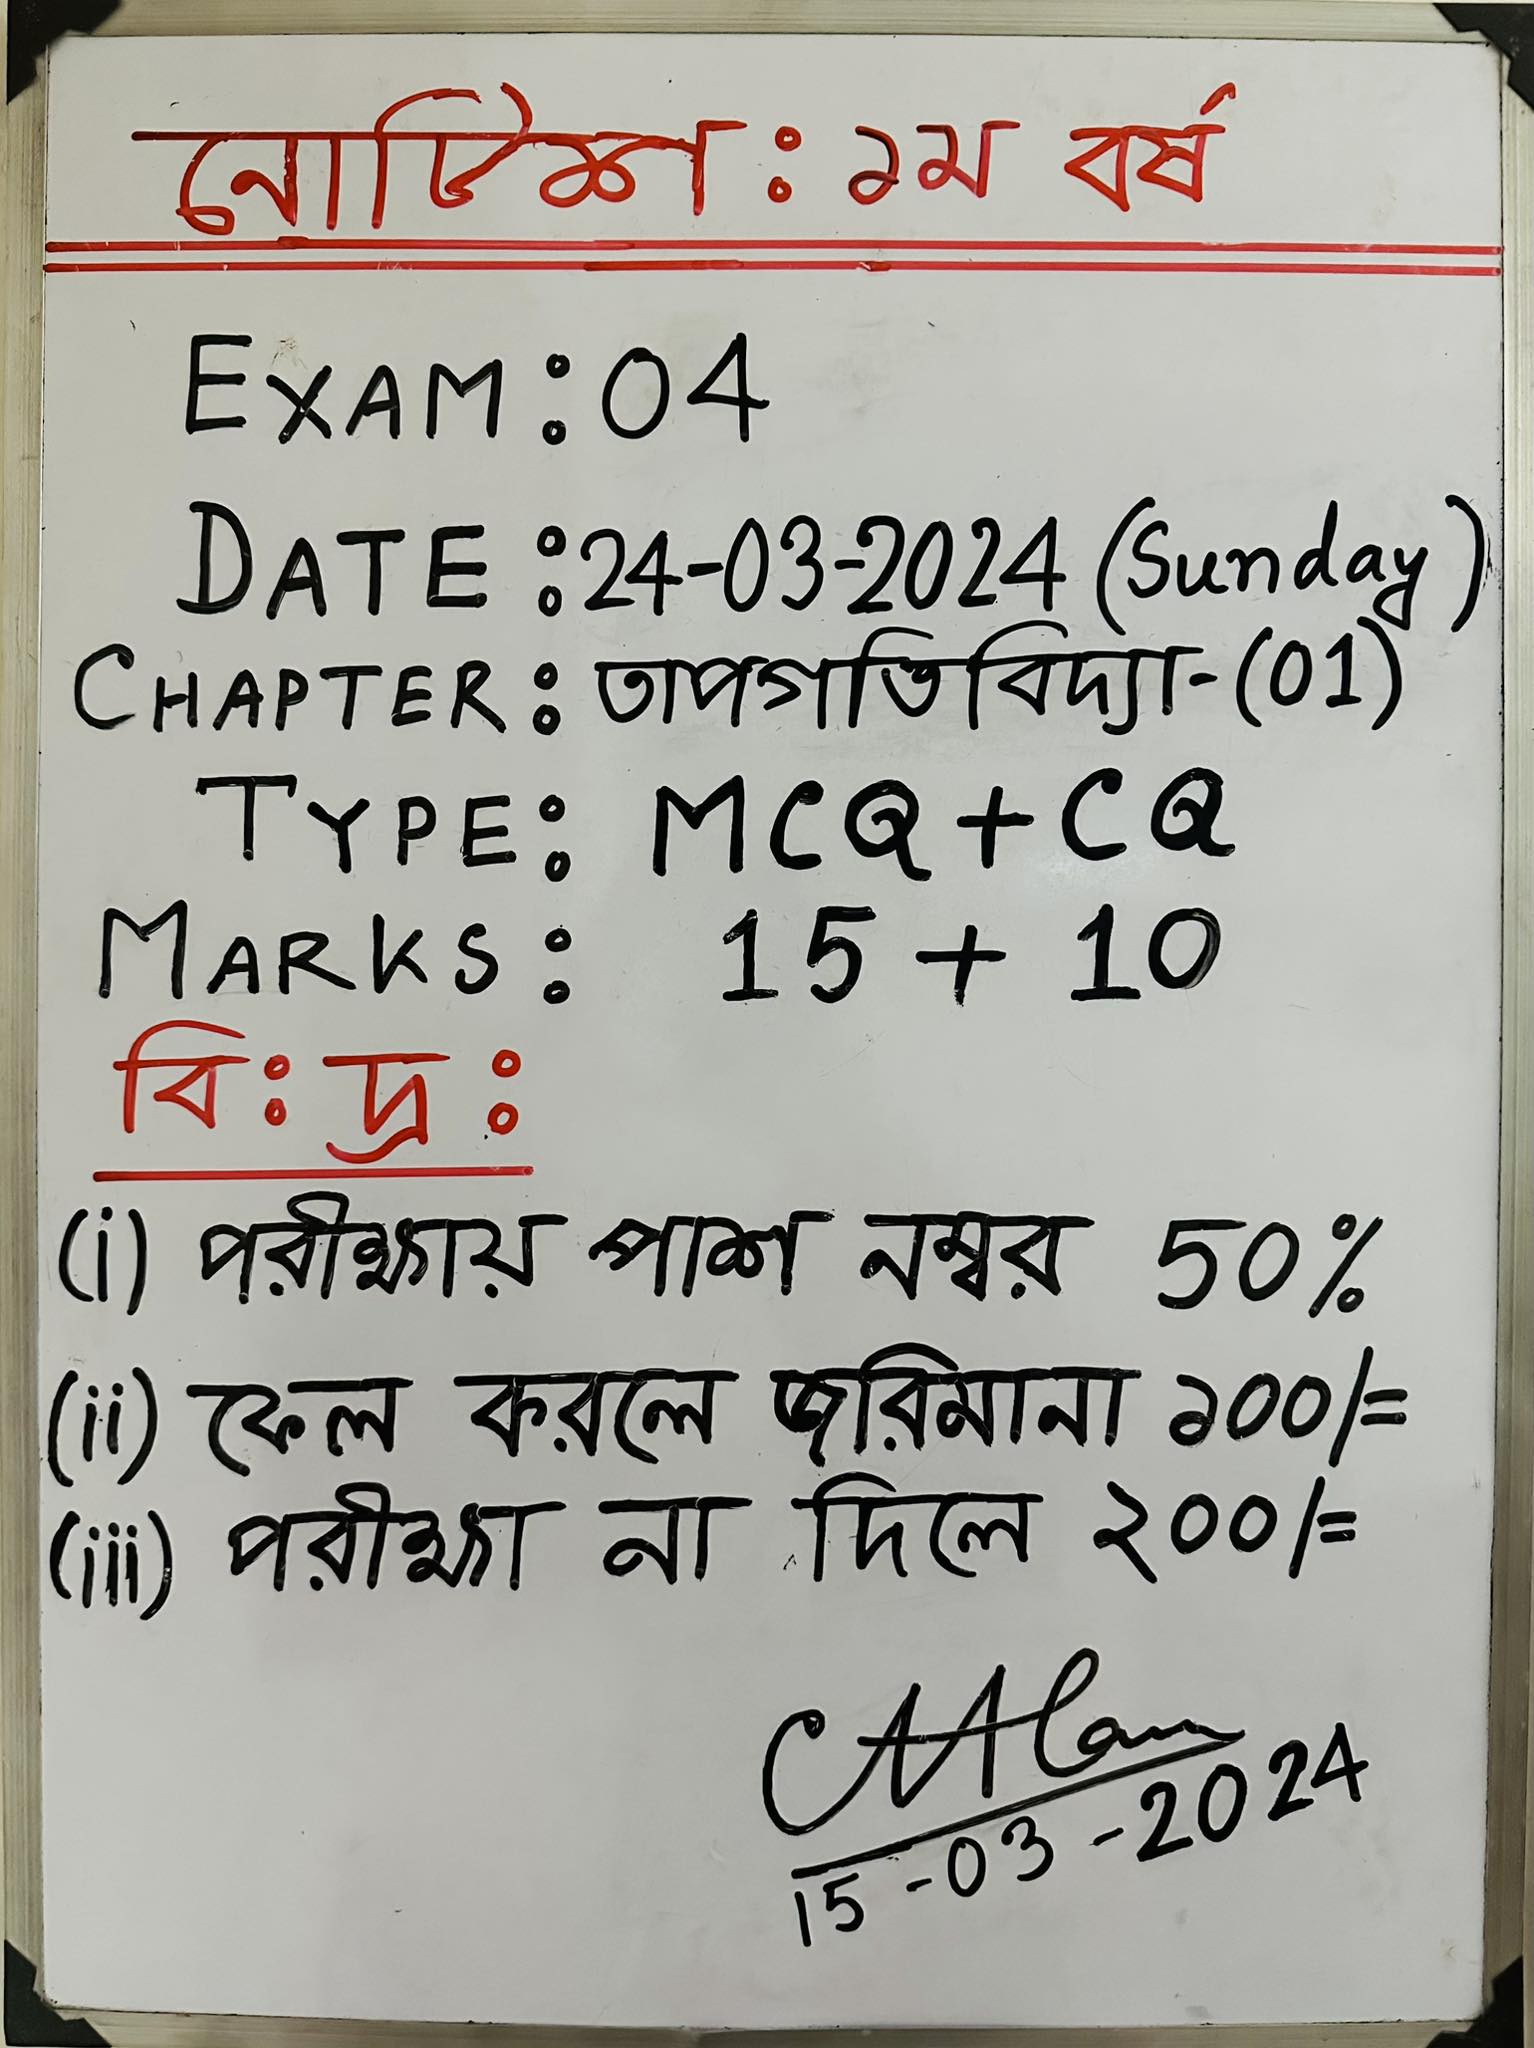 নোটিশ : ১ম বর্ষ
EXAM : 04
DATE : 24-03-2024 (Sunday)
CHAPTER : তাপগতিবিদ্যা-(01)
TYPE : MCQ + CQ
MARKS : 15 + 10
বি : দ্র :
(i) পরীক্ষায় পাশ নম্বর 50%
(ii) ফেল করলে জরিমানা ১০০/=
(iii) পরীক্ষা না দিলে ২০০/=
15-03-2024